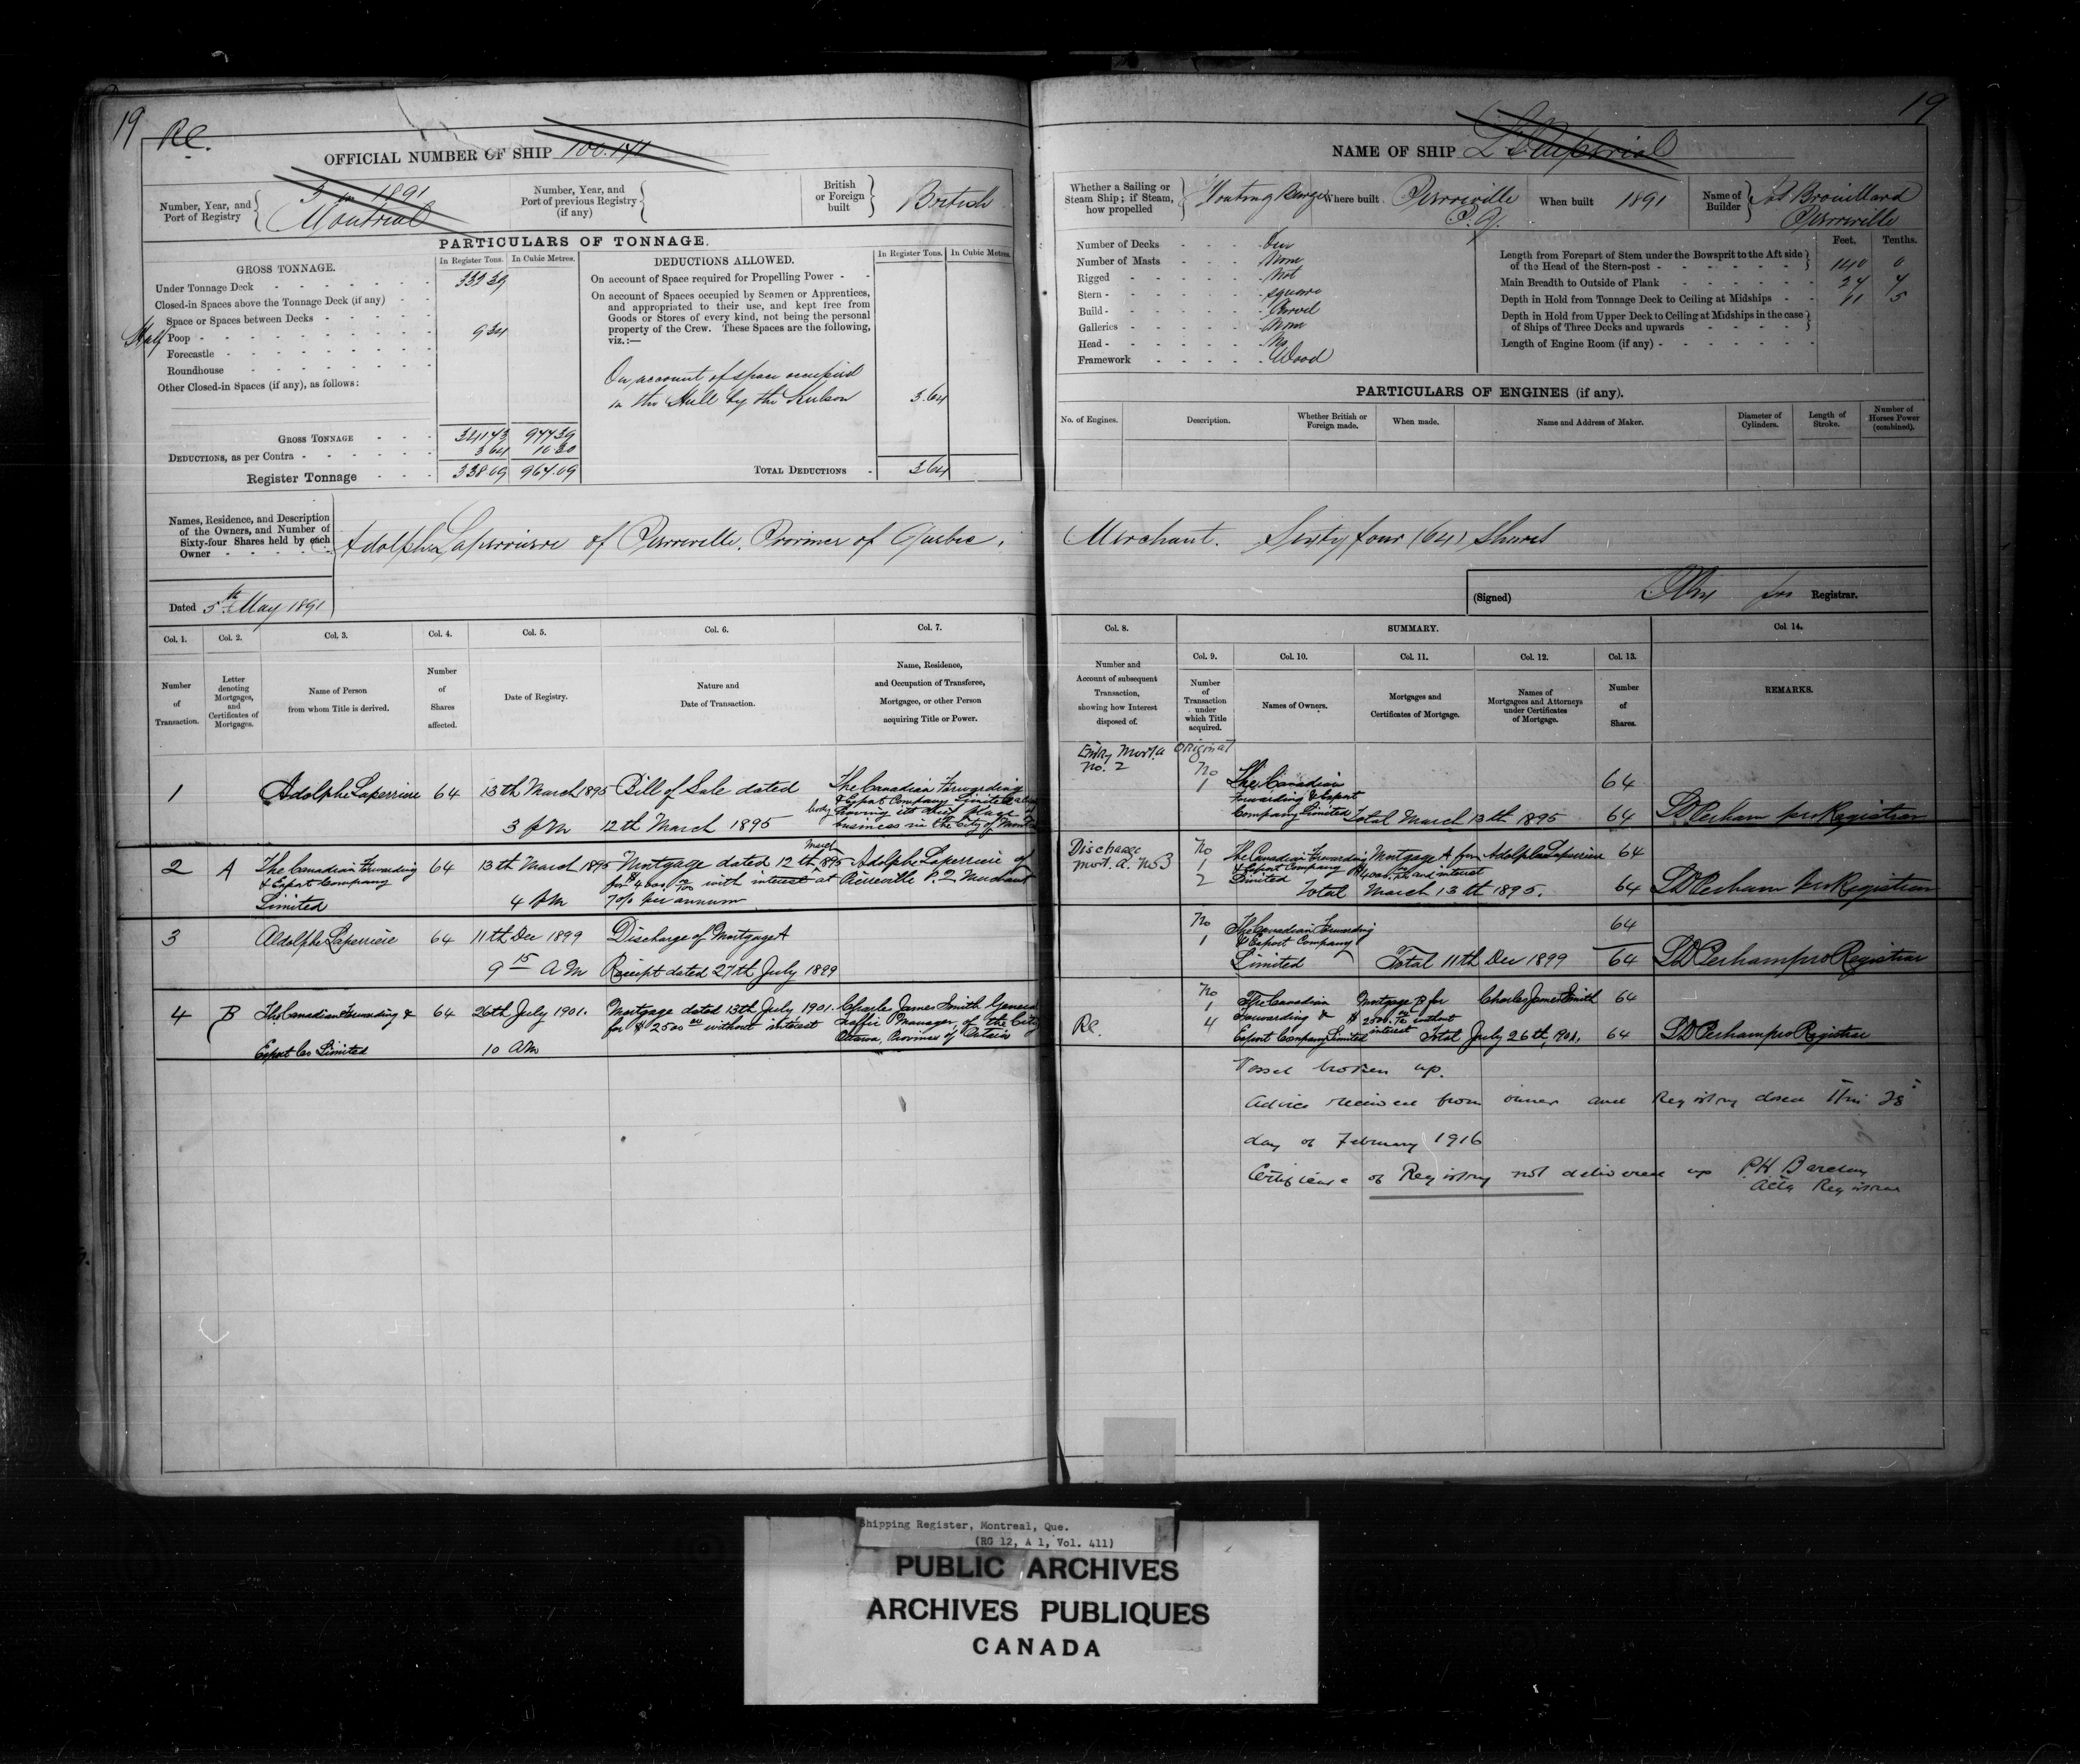 19
19
R.C.
OFFICIAL NUMBER OF SHIP 100.141
NAME OF SHIP L'Imperial
Number, Year, and Port of Registry
3 in 1891
Montreal
Number, Year, and Port of previous Registry (if any)
British or Foreign built
British
Whether a Sailing or Steam Ship; if Steam, how propelled
Floating Barge
Where built Pierreville P.Q.
When built 1891
Name of Builder
Brouillard
Pierreville
PARTICULARS OF TONNAGE.
GROSS TONNAGE.
In Register Tons.
In Cubic Metres.
Under Tonnage Deck 333 39
Closed-in Spaces above the Tonnage Deck (if any)
Space or Spaces between Decks
Half Poop 9 34
Forecastle
Roundhouse
Other Closed-in Spaces (if any), as follows:
GROSS TONNAGE 974 39
DEDUCTIONS, as per Contra 3 64 10 30
Register Tonnage 338.09 964.09
DEDUCTIONS ALLOWED.
In Register Tons.
In Cubic Metres.
On account of Space required for Propelling Power
On account of Spaces occupied by Seamen or Apprentices,
and appropriated to their use, and kept free from
Goods or Stores of every kind, not being the personal
property of the Crew. These Spaces are the following,
viz.:—
On account of space occupied
in the Hull by the Kelson 3.64
TOTAL DEDUCTIONS 3.64
Number of Decks One
Number of Masts None
Rigged Not
Stern square
Build Carvel
Galleries None
Head No
Framework Wood
Feet. Tenths.
Length from Forepart of Stem under the Bowsprit to the Aft side
of the Head of the Stern-post 140 0
Main Breadth to Outside of Plank 24 4
Depth in Hold from Tonnage Deck to Ceiling at Midships 11 5
Depth in Hold from Upper Deck to Ceiling at Midships in the case
of Ships of Three Decks and upwards
Length of Engine Room (if any)
PARTICULARS OF ENGINES (if any).
No. of Engines.
Description.
Whether British or Foreign made.
When made.
Name and Address of Maker.
Diameter of Cylinders.
Length of Stroke.
Number of Horses Power (combined).
Names, Residence, and Description
of the Owners, and Number of
Sixty-four Shares held by each
Owner
Adolphe Laperriere of Pierreville, Province of Quebec, Merchant. Sixty four (64) Shares
Dated 5th May 1891
(Signed) for Registrar.
Col. 1. Col. 2. Col. 3. Col. 4. Col. 5. Col. 6. Col. 7.
Number of Transaction.
Letter denoting Mortgages, and Certificates of Mortgages.
Name of Person from whom Title is derived.
Number of Shares affected.
Date of Registry.
Nature and Date of Transaction.
Name, Residence, and Occupation of Transferee, Mortgagee, or other Person acquiring Title or Power.
Col. 8. SUMMARY. Col. 14.
Col. 9. Col. 10. Col. 11. Col. 12. Col. 13.
Number and Account of subsequent Transaction, showing how Interest disposed of.
Number of Transaction under which Title acquired.
Names of Owners.
Mortgages and Certificates of Mortgage.
Names of Mortgagees and Attorneys under Certificates of Mortgage.
Number of Shares.
REMARKS.
1 Adolphe Laperriere 64 13th March 1895 Bill of Sale dated The Canadian Forwarding
& Export Company Limited a
body having its chief place
3 PM 12th March 1895 business in the City of Montreal
Entry Mort. a Original
No. 2
No
1
The Canadian 64
Forwarding & Export
Company Limited Total March 13th 1895 64 Perham pro Registrar
2 A The Canadian Forwarding 64 13th March 1895 Mortgage dated 12th March 1895 Adolphe Laperriere of
& Export Company for $4000 00/100 with interest at Pierreville P.Q. Merchant
Limited 4 PM 7% per annum
Discharge
Mort. a. No 3
No
1
2
The Canadian Forwarding Mortgage A for Adolphe Laperriere 64
& Export Company $4000 and interest
Limited Total March 13th 1895. 64 Perham pro Registrar
3 Adolphe Laperriere 64 11th Dec 1899 Discharge of Mortgage A
9 15 AM Receipt dated 27th July 1899
No
1
The Canadian Forwarding 64
& Export Company
Limited Total 11th Dec 1899 64 Perham pro Registrar
4 B The Canadian Forwarding & 64 26th July 1901. Mortgage dated 13th July 1901. Charles James Smith General
for $2500 00 without interest Traffic Manager, of the City
Export Co Limited 10 AM Ottawa, Province of Ontario
R.C.
No
1
4
The Canadian Mortgage B for Charles James Smith 64
Forwarding & $2500. without
interest
Export Company Limited Total July 26th, 1901. 64 Perham pro Registrar
Vessel broken up.
Advice received from owner and Registry closed this 28
day of February 1916
Certificate of Registry not delivered up P H Barclay
Actg Registrar
Shipping Register, Montreal, Que.
(RG 12, A 1, Vol. 411)
PUBLIC ARCHIVES
ARCHIVES PUBLIQUES
CANADA